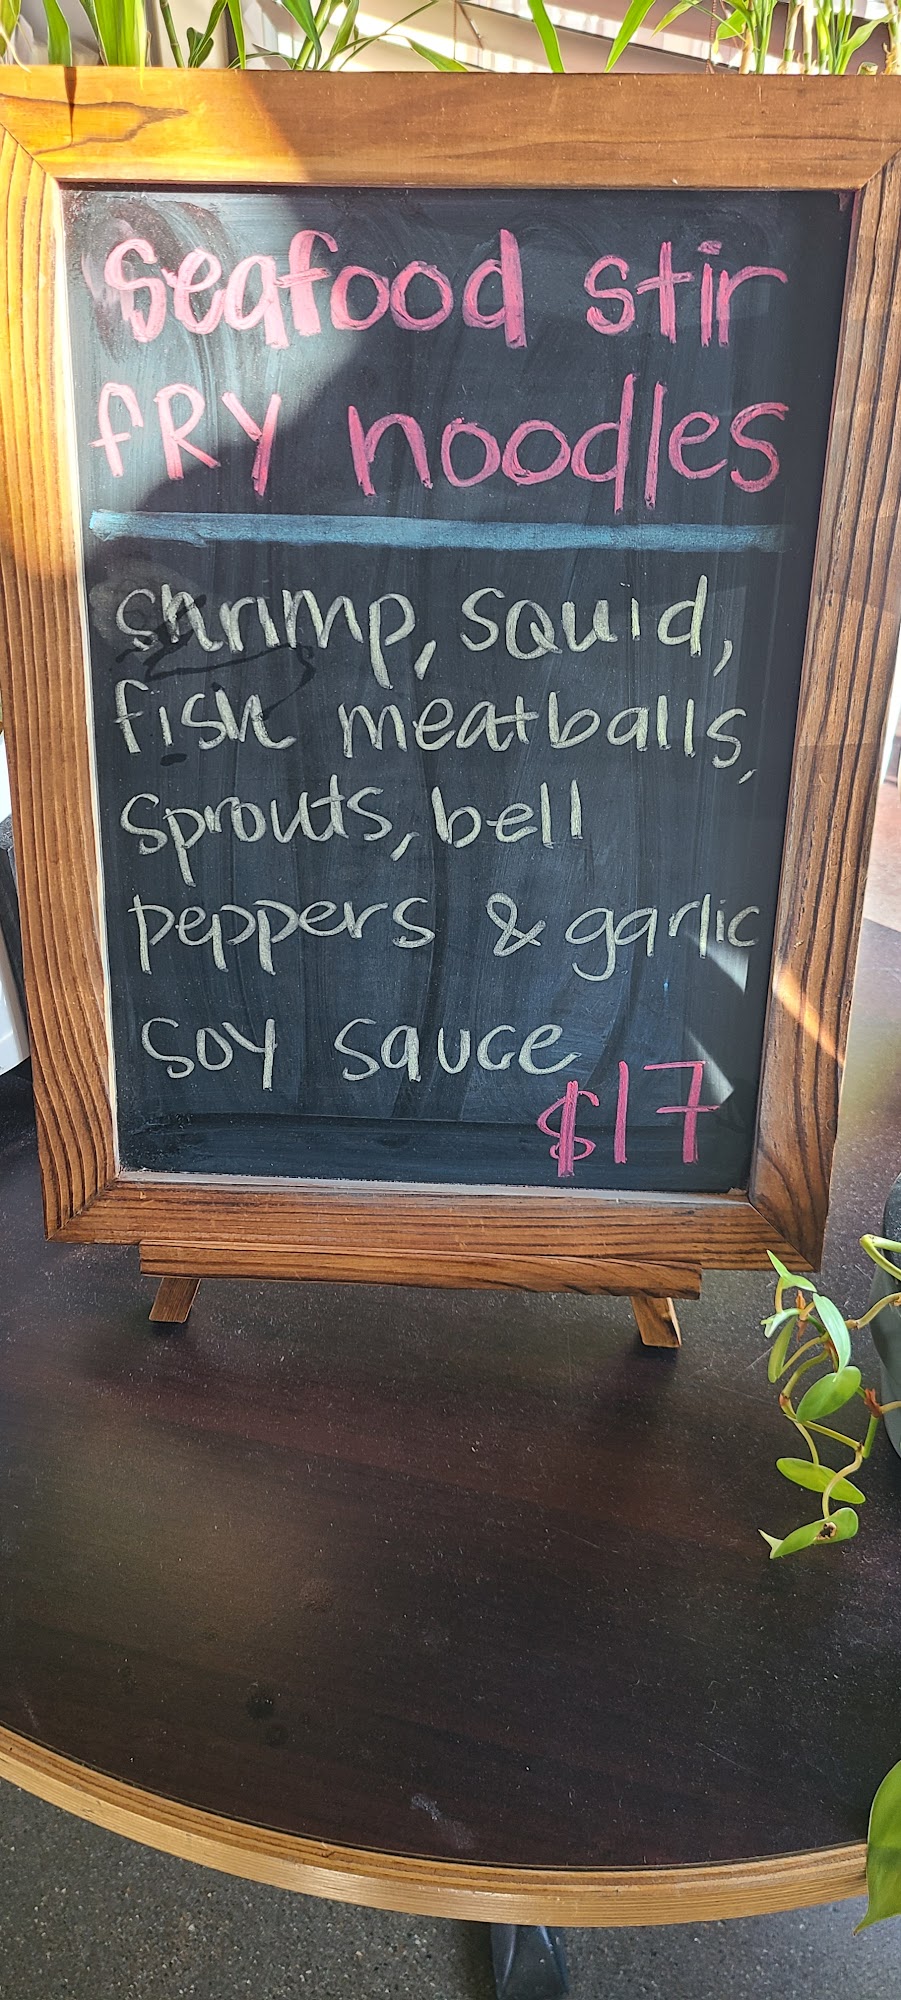 seafood stir
fRY noodles
shrimp, squid,
fish meatballs,
sprouts, bell
peppers & garlic
soy sauce
$17